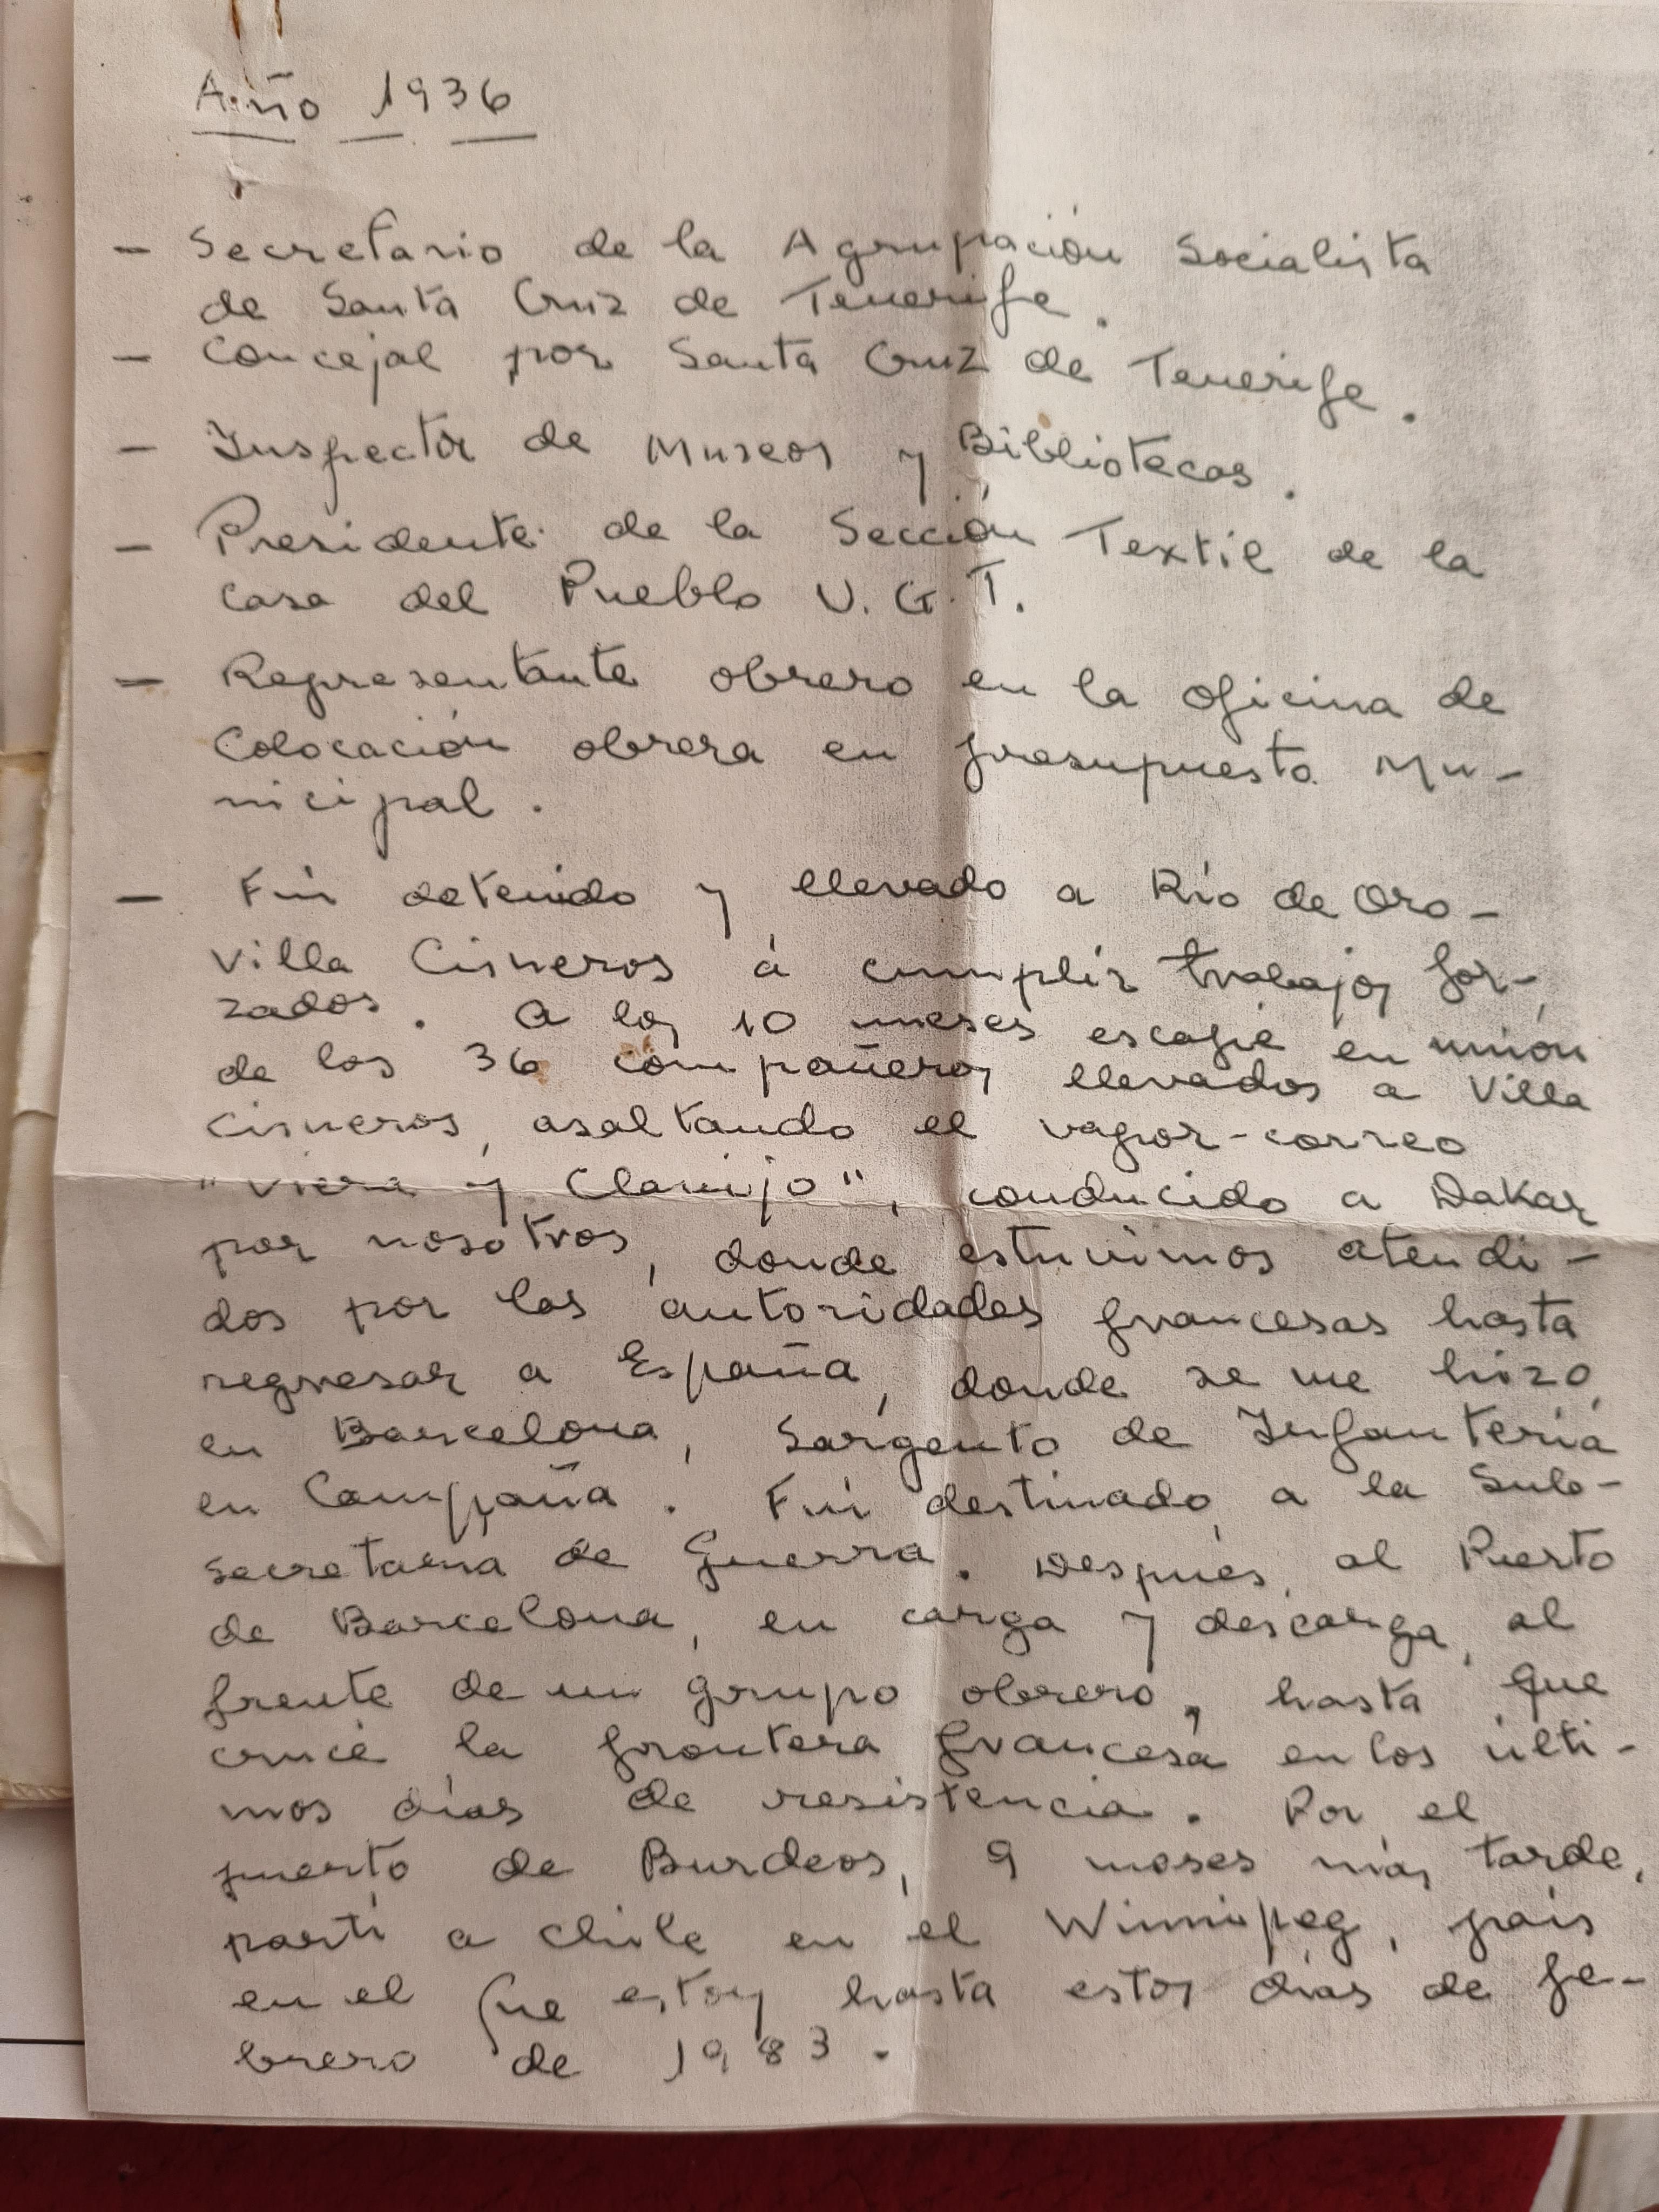 Año 1936
- Secretario de la Agrupación Socialista
de Santa Cruz de Tenerife.
- Concejal por Santa Cruz de Tenerife.
- Inspector de Museos y Bibliotecas.
- Presidente de la Sección Textil de la
Casa del Pueblo U.G.T.
- Representante obrero en la oficina de
Colocación obrera en presupuesto Mu-
nicipal.
- Fui detenido y llevado a Río de Oro-
Villa Cisneros á cumplir trabajos for-
zados. A los 10 meses escapé en unión
de los 36 compañeros llevados a Villa
Cisneros, asaltando el vapor-correo
"Viera y Clavijo", conducido a Dakar
por nosotros, donde estuvimos atendi-
dos por las autoridades francesas hasta
regresar a España, donde se me hizo,
en Barcelona, Sargento de Infantería
en Campaña. Fui destinado a la Sub-
secretaria de Guerra. Después, al Puerto
de Barcelona, en carga y descarga, al
frente de un grupo obrero, hasta que
crucé la frontera francesa en los últi-
mos días de resistencia. Por el
puerto de Burdeos, 9 meses más tarde,
partí a Chile en el Winnipeg, país
en el que estoy hasta estos días de fe-
brero de 1983.